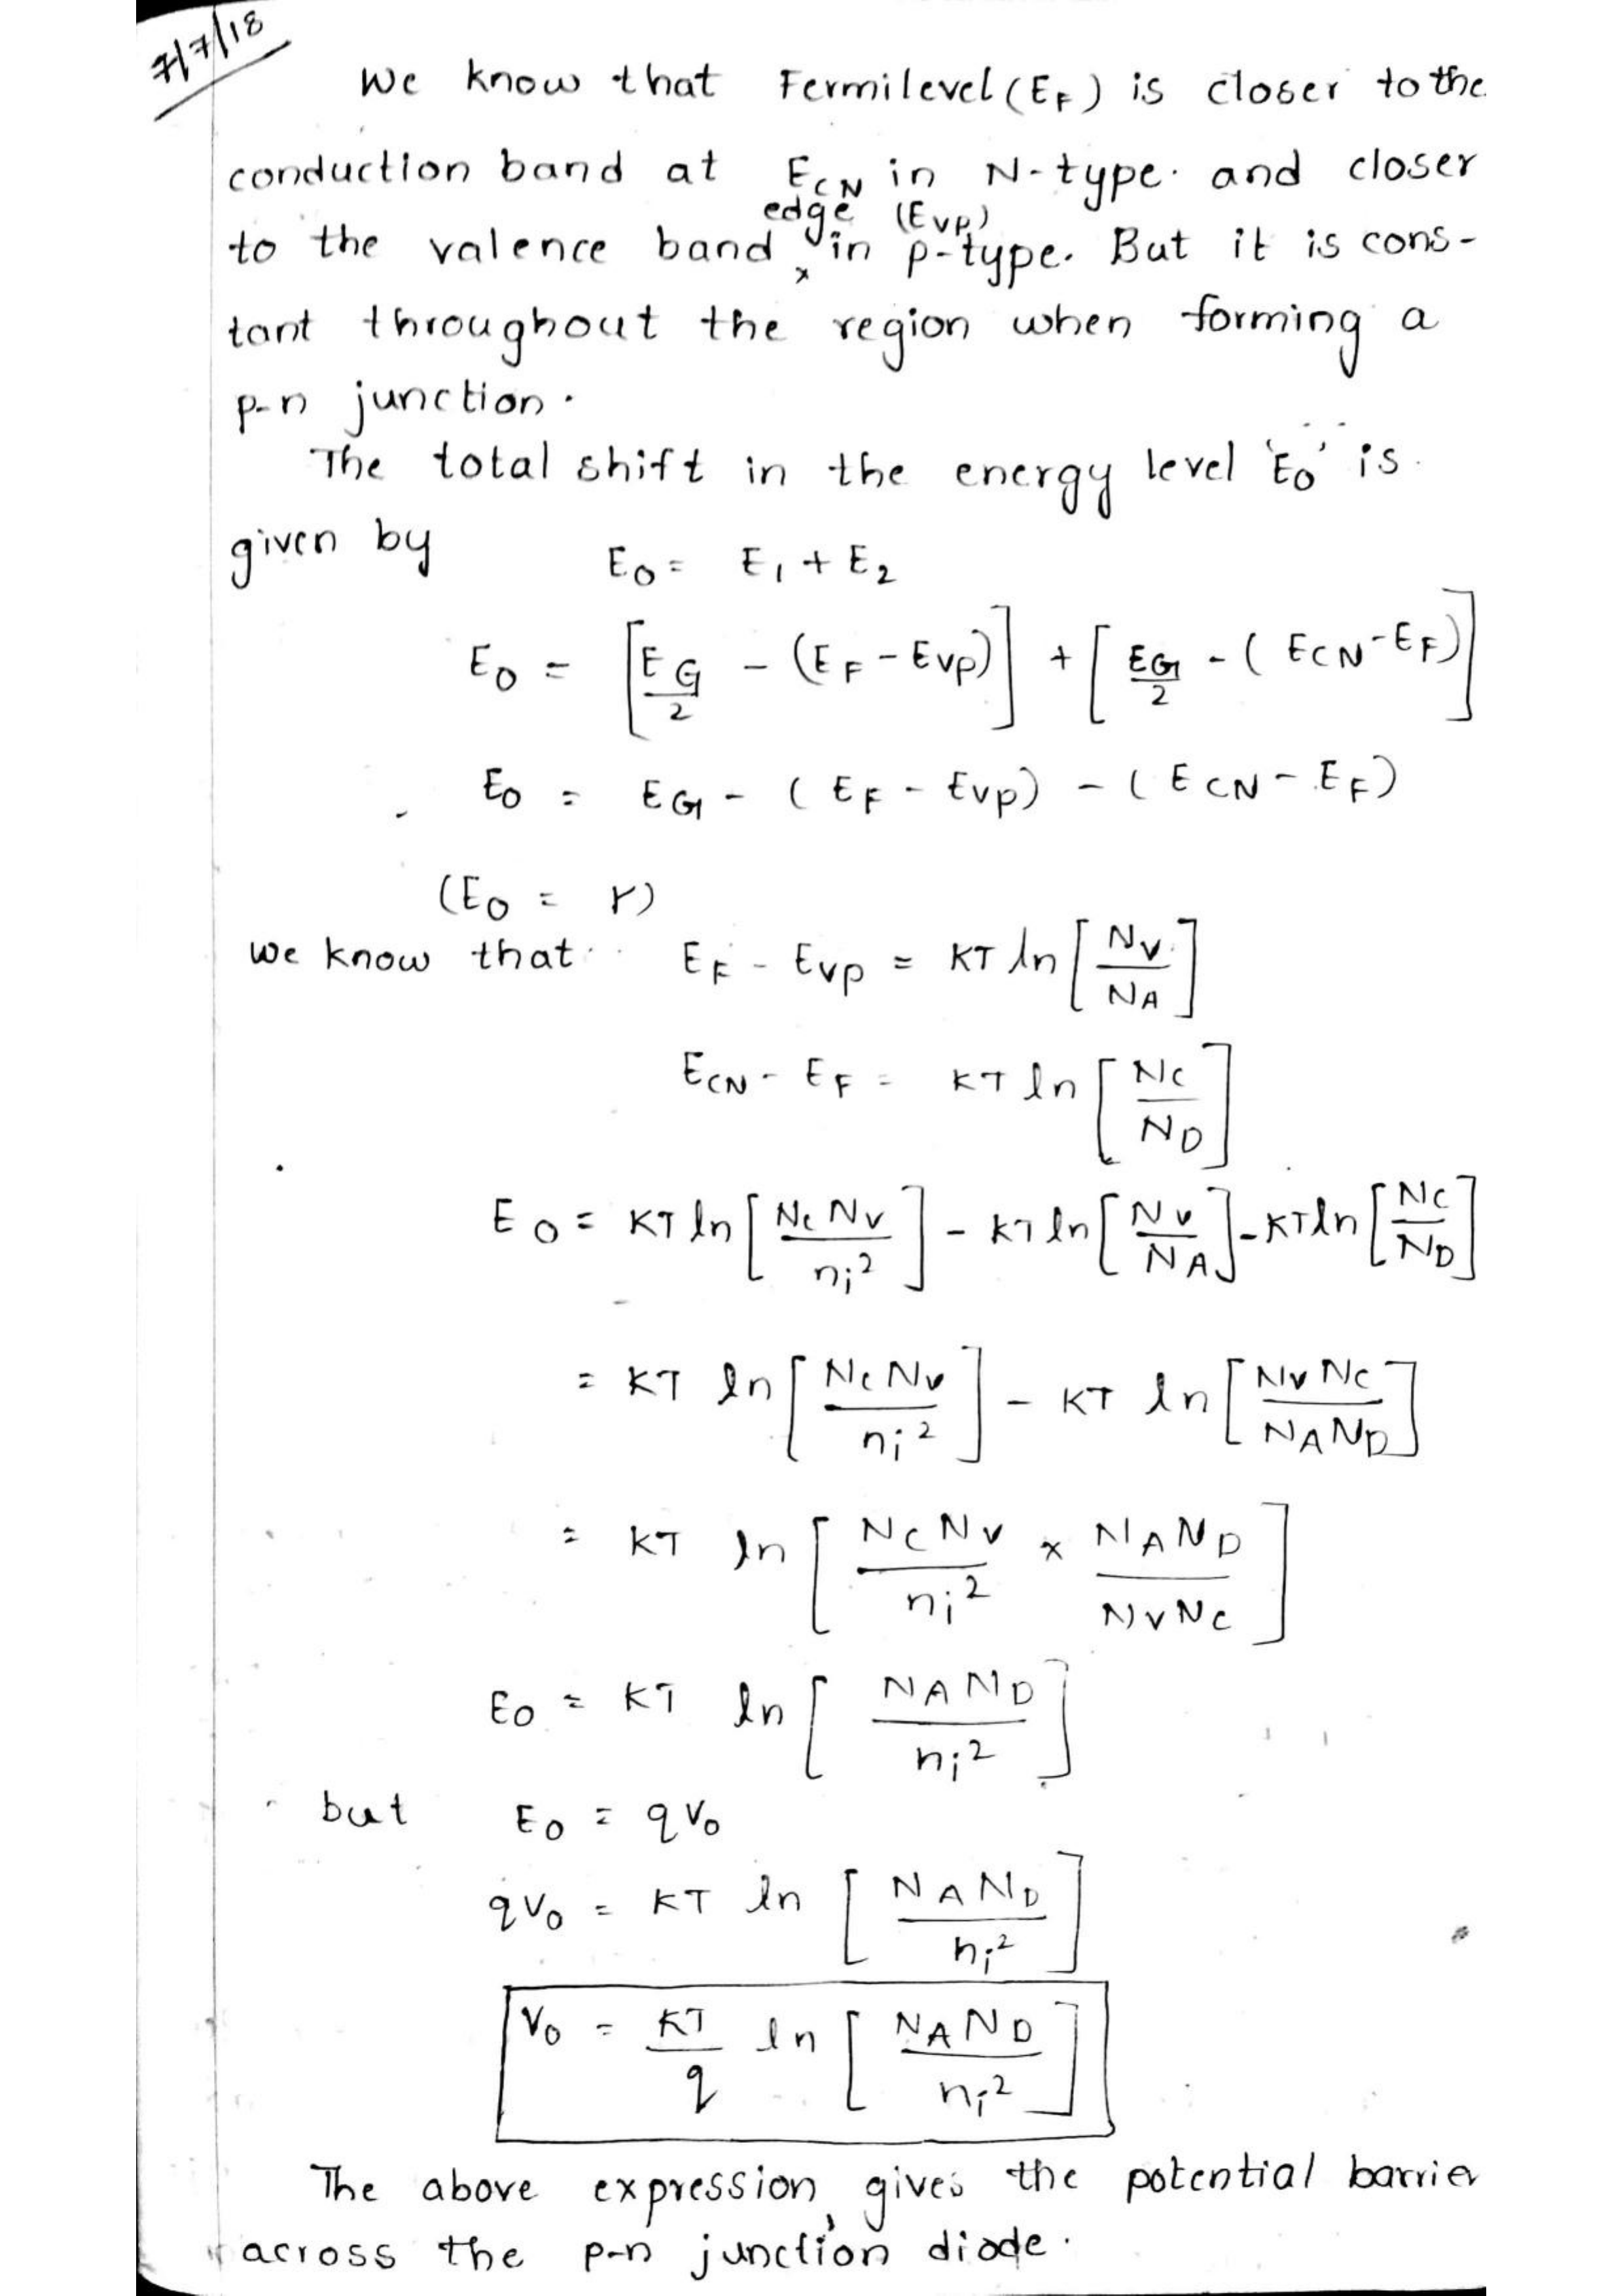 7/7/18
We know that Fermilevel (EF) is closer to the
conduction band at ECN in N-type. and closer
edge (EVP)
to the valence band in p-type. But it is cons-
tant throughout the region when forming a
p-n junction.
The total shift in the energy level 'E0' is
given by E0 = E1 + E2
E0 = [EG/2 - (EF - EVP)] + [EG/2 - (ECN - EF)]
E0 = EG - (EF - EVP) - (ECN - EF)
(E0 = )
we know that EF - EVP = KT ln [NV/NA]
ECN - EF = KT ln [NC/ND]
E0 = KT ln [NC NV/ni²] - KT ln [NV/NA] - KT ln [NC/ND]
= KT ln [NC NV/ni²] - KT ln [NV NC/NA ND]
= KT ln [NC NV/ni² x NA ND/NV NC]
E0 = KT ln [NA ND/ni²]
but E0 = qV0
qV0 = KT ln [NA ND/ni²]
V0 = KT/q ln [NA ND/ni²]
The above expression, gives the potential barrier
across the p-n junction diode.